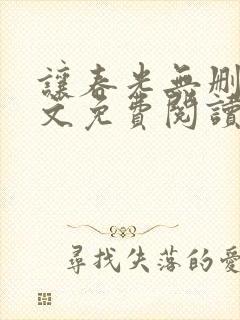 讓春光無删
文免費閱讀
尋找失落的愛